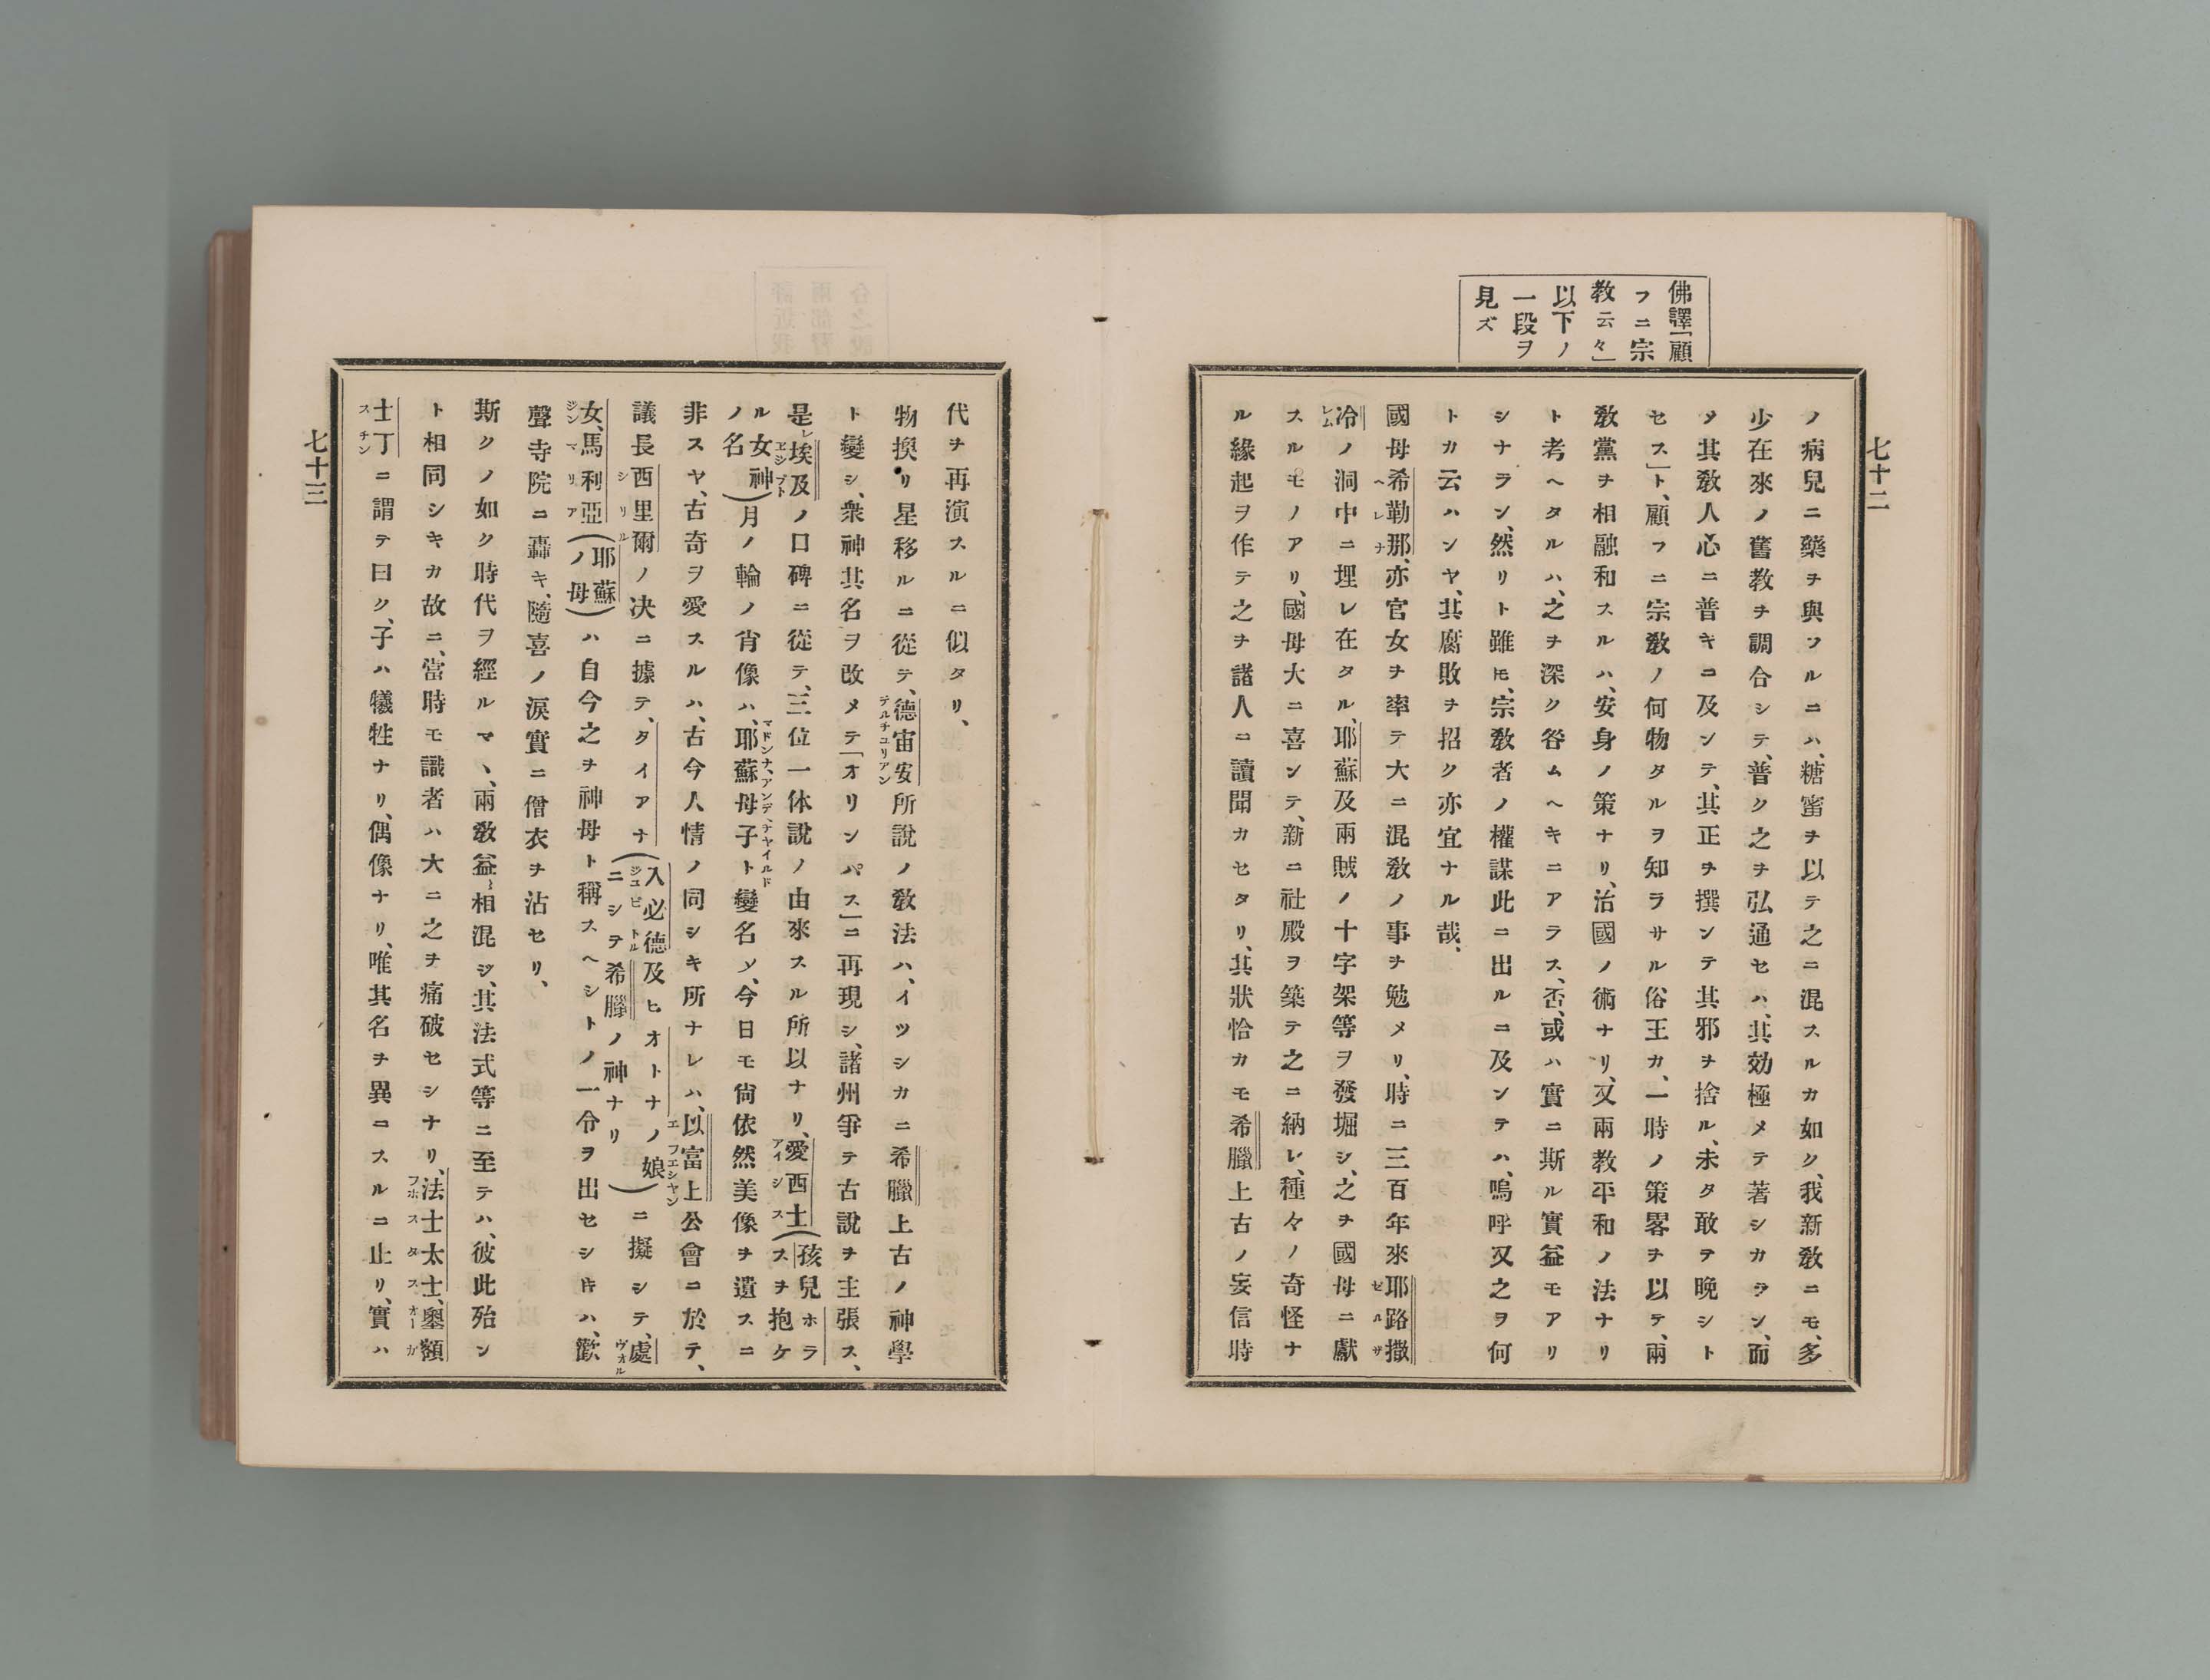 七十二
佛譯「顧
フニ宗
教云々」
以下ノ
一段ヲ
見ズ
ノ病兒ニ藥チ與フルニハ、糖蜜チ以テ之ニ混スルカ如ク、我新敎ニモ、多
少在來ノ舊敎チ調合シテ、普ク之チ弘通セハ、其効極メテ著シカラン、而
ヲ其敎人心ニ普キニ及ンテ、其正チ撰ンテ其邪ヲ捨ル、未タ敢テ晩シト
セス」ト、顧フニ宗敎ノ何物タルヲ知ラサル俗王カ、一時ノ策畧チ以テ、兩
敎黨ヲ相融和スルハ、安身ノ策ナリ、治國ノ術ナリ、又兩敎平和ノ法ナリ
ト考ヘタルハ、之ヲ深ク咎ムヘキニアラス、否、或ハ實ニ斯ル實益モアリ
シナラン、然リト雖モ、宗敎者ノ權謀此ニ出ルニ及ンテハ、嗚呼又之ヲ何
トカ云ハンヤ、其腐敗ヲ招ク亦宜ナル哉、
國母希勒那、亦官女チ率テ大ニ混敎ノ事チ勉メリ、時ニ三百年來耶路撒
冷ノ洞中ニ埋レ在タル、耶蘇及兩賊ノ十字架等ヲ發堀シ、之ヲ國母ニ獻
スルモノアリ、國母大ニ喜ンテ、新ニ社殿ヲ築テ之ニ納レ、種々ノ奇怪ナ
ル緣起ヲ作テ之チ諸人ニ讀聞カセタリ、其狀恰カモ希臘上古ノ妄信時
代ヲ再演スルニ似タリ、
物換リ星移ルニ從テ、德宙安所說ノ敎法ハ、イツシカニ希臘上古ノ神學
ト變シ、衆神其名ヲ改メテ「オリンパス」ニ再現シ、諸州爭テ古說ヲ主張ス、
是レ埃及ノ口碑ニ從テ、三位一体說ノ由來スル所以ナリ、愛西士(孩兒ホラスヲ抱ケ
ル女神ノ名)月ノ輪ノ肖像ハ、耶蘇母子ト變名シ、今日モ尙依然美像ヲ遺スニ
非スヤ、古奇ヲ愛スルハ、古今人情ノ同シキ所ナレハ、以富上公會ニ於テ、
議長西里爾ノ决ニ據テ、タイアナ(入必德及ヒオトナノ娘ニシテ希臘ノ神ナリ)ニ擬シテ、處
女、馬利亞(耶蘇ノ母)ハ自今之チ神母ト稱スヘシトノ一令ヲ出セシトキハ、歡
聲寺院ニ轟キ、隨喜ノ淚實ニ僧衣チ沾セリ、
斯クノ如ク時代ヲ經ルマヽ、兩敎益〻相混シ、其法式等ニ至テハ、彼此殆ン
ト相同シキカ故ニ、當時モ識者ハ大ニ之チ痛破セシナリ、法士太士、墺額
士丁ニ謂テ曰ク、子ハ犧牲ナリ、偶像ナリ、唯其名チ異ニスルニ止リ、實ハ
七十三